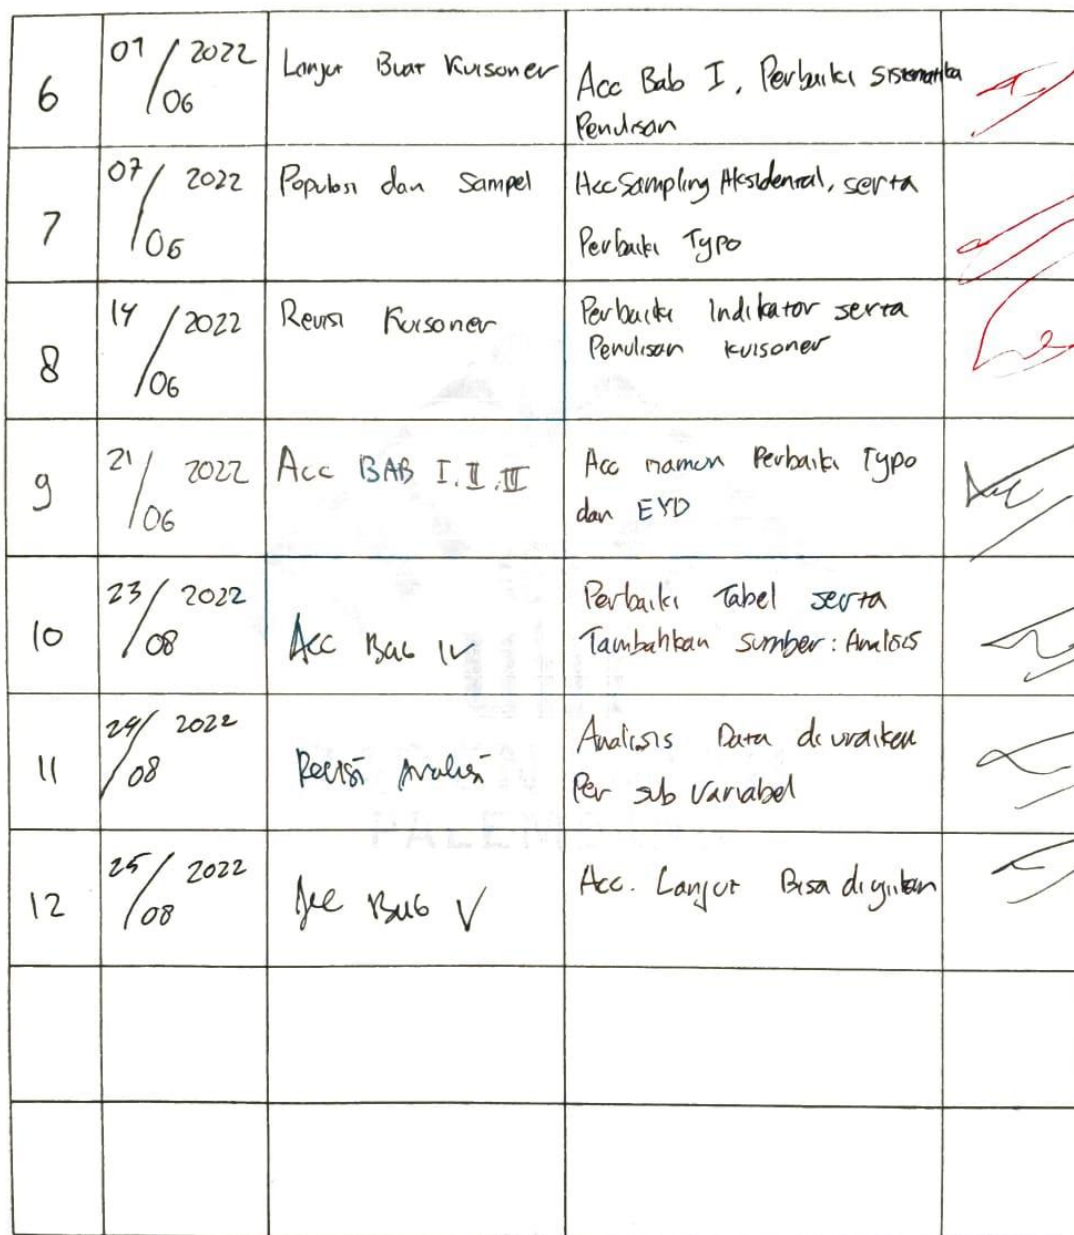 6
01/06 2022
Lanjut Buat Kuisoner
Acc Bab I, Perbaiki sistematika
Penulisan
7
07/06 2022
Populasi dan Sampel
Acc Sampling Aksidental, serta
Perbaiki Typo
8
14/06 2022
Revisi Kuisoner
Perbaiki Indikator serta
Penulisan kuisoner
9
21/06 2022
Acc BAB I, II, III
Acc namun Perbaiki Typo
dan EYD
10
23/08 2022
Acc Bab IV
Perbaiki Tabel serta
Tambahkan sumber: Analisis
11
24/08 2022
Revisi Analisis
Analisis Data di uraikan
Per sub Variabel
12
25/08 2022
Acc Bab V
Acc. Lanjut Bisa diujikan
PALEM